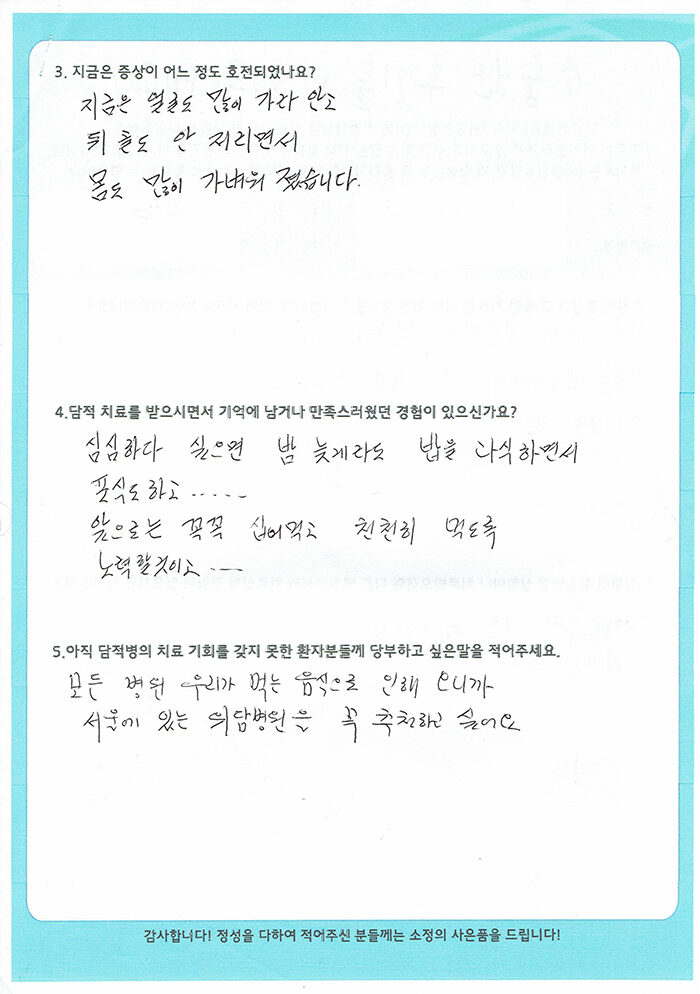 3. 지금은 증상이 어느 정도 호전되었나요?
지금은 얼굴도 많이 가라 안고
뒤 촐도 안 저리면서
몸도 많이 가벼워 졌습니다.
4.담적 치료를 받으시면서 기억에 남거나 만족스러웠던 경험이 있으신가요?
심심하다 싶으면 밤 늦게라도 밥을 과식하면서
폭식도하고 .....
앞으로는 꼭꼭 십어먹고 천천히 먹도록
노력할것이고 ...
5.아직 담적병의 치료 기회를 갖지 못한 환자분들께 당부하고 싶은말을 적어주세요.
모든 병원 우리가 먹는 음식으로 인해 오니까
서울에 있는 위담병원을 꼭 추천하고 싶어요
감사합니다! 정성을 다하여 적어주신 분들께는 소정의 사은품을 드립니다!